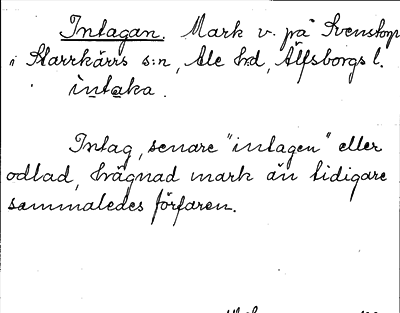 Intagan. Mark v. på Svenstorp
i Starrkärrs s:n, Ale hd, Älfsborgs l.
ìntaka.
Intag, senare "intagen" eller
odlad, hägnad mark än tidigare
sammaledes förfaren.